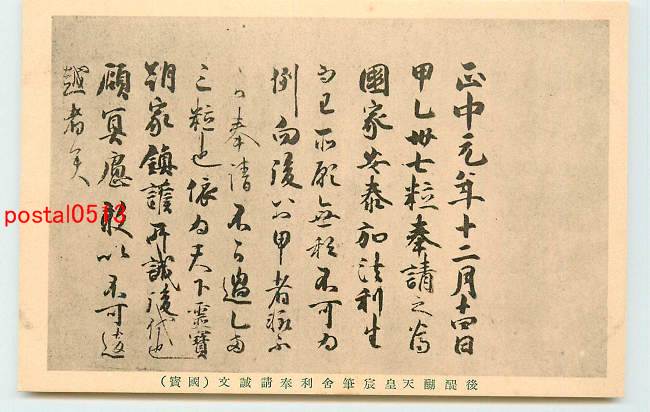 正中元年十二月十四日
甲乙卅七粒奉請之為
國家安泰加法利生
而已所願無私不可為
例向後於甲者雖不
可奉請不可過乙両
三粒也依為天下霊寶
朝家鎮護所誡後代也
顧冥慮敢以不可違
越者矣
後醍醐天皇宸筆舍利奉請誡文(國寶)
postal0513